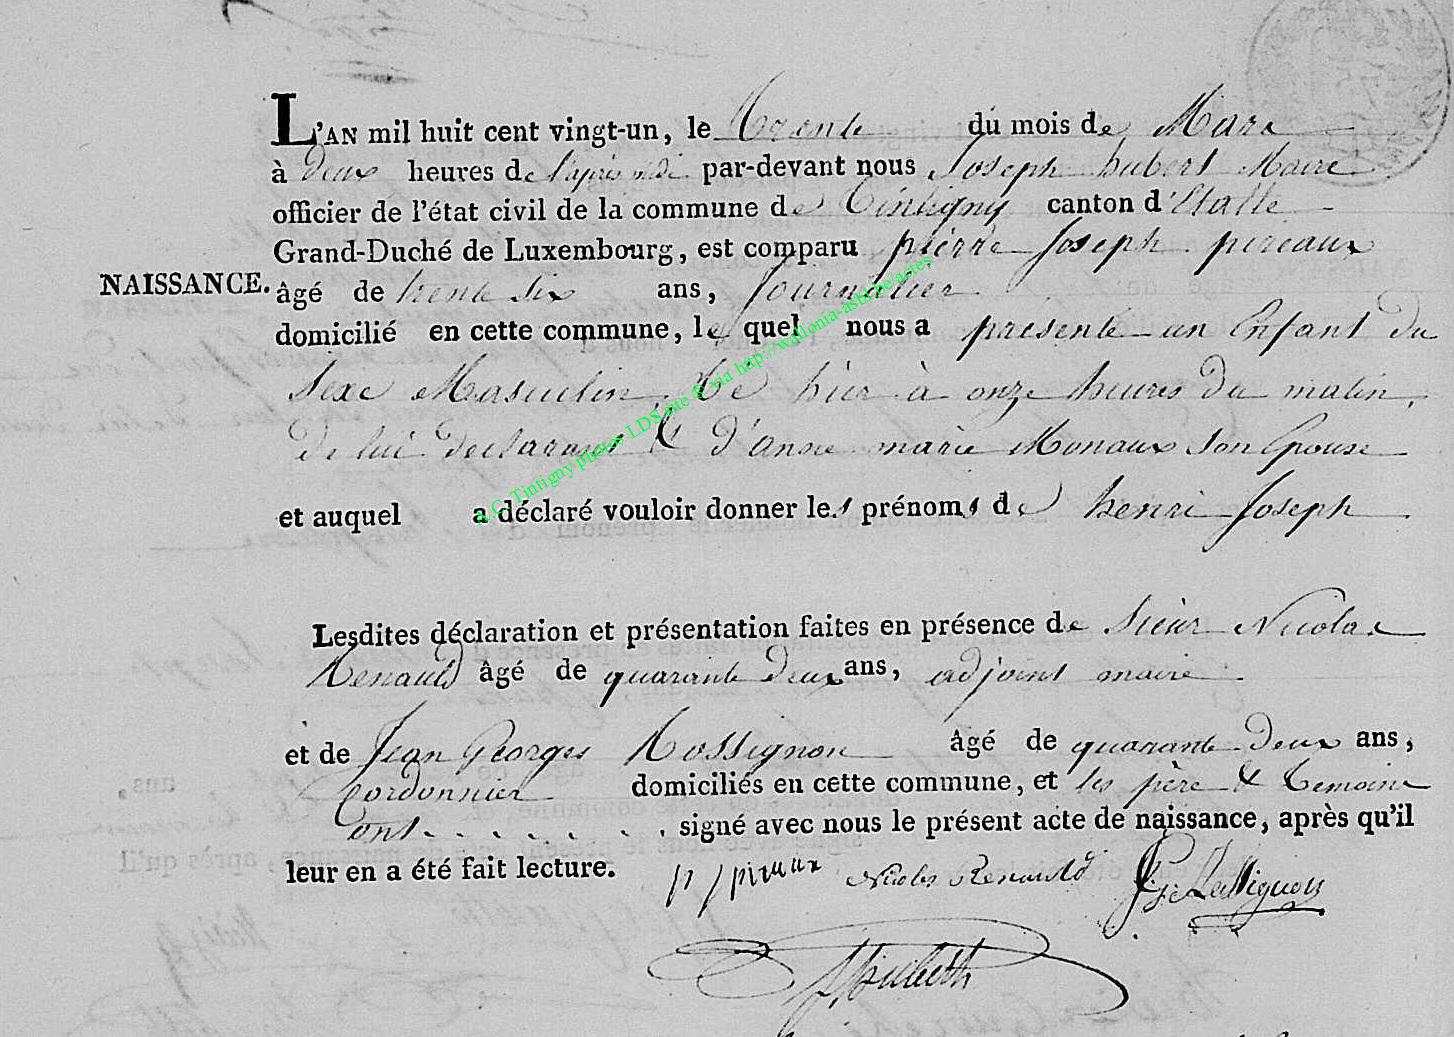 L'AN mil huit cent vingt-un, le Trente du mois de Mars
à deux heures de l'après midi par-devant nous Joseph hubert Maire
officier de l'état civil de la commune de Tintigny canton d'Etalle
Grand-Duché de Luxembourg, est comparu pierre Joseph pireaux
NAISSANCE. âgé de trente six ans, Journalier
domicilié en cette commune, le quel nous a présenté un Enfant du
Sexe Masculin, Né hier à onze heures du matin,
De lui Déclarant & d'anne marie Monaux Son Epouse
et auquel a déclaré vouloir donner les prénoms de henri Joseph
Lesdites déclaration et présentation faites en présence de Sieur Nicolas
Renauld âgé de quarante Deux ans, adjoint maire
et de Jean Georges Rossignon âgé de quarante Deux ans,
Cordonnier domiciliés en cette commune, et les père & Temoins
ont . . . . . . . signé avec nous le présent acte de naissance, après qu'il
leur en a été fait lecture. p j piraux Nicolas Renauld J: g: Rossignon
J. hubert
A.G. Tintigny photos LDS site & via http://wallonia-asbl.be/actes